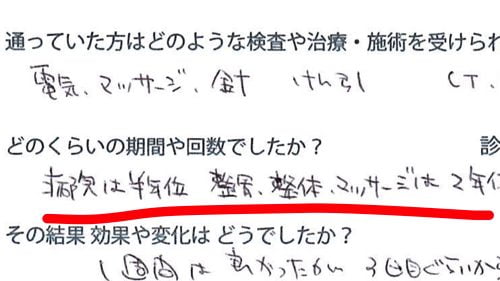 通っていた方はどのような検査や治療・施術を受けられ
電気、マッサージ、針 けん引 CT、
どのくらいの期間や回数でしたか？ 診
病院は半年位 整骨、整体、マッサージは2年位
その結果 効果や変化は どうでしたか？
1週間は良かったが 3回目ぐらいから